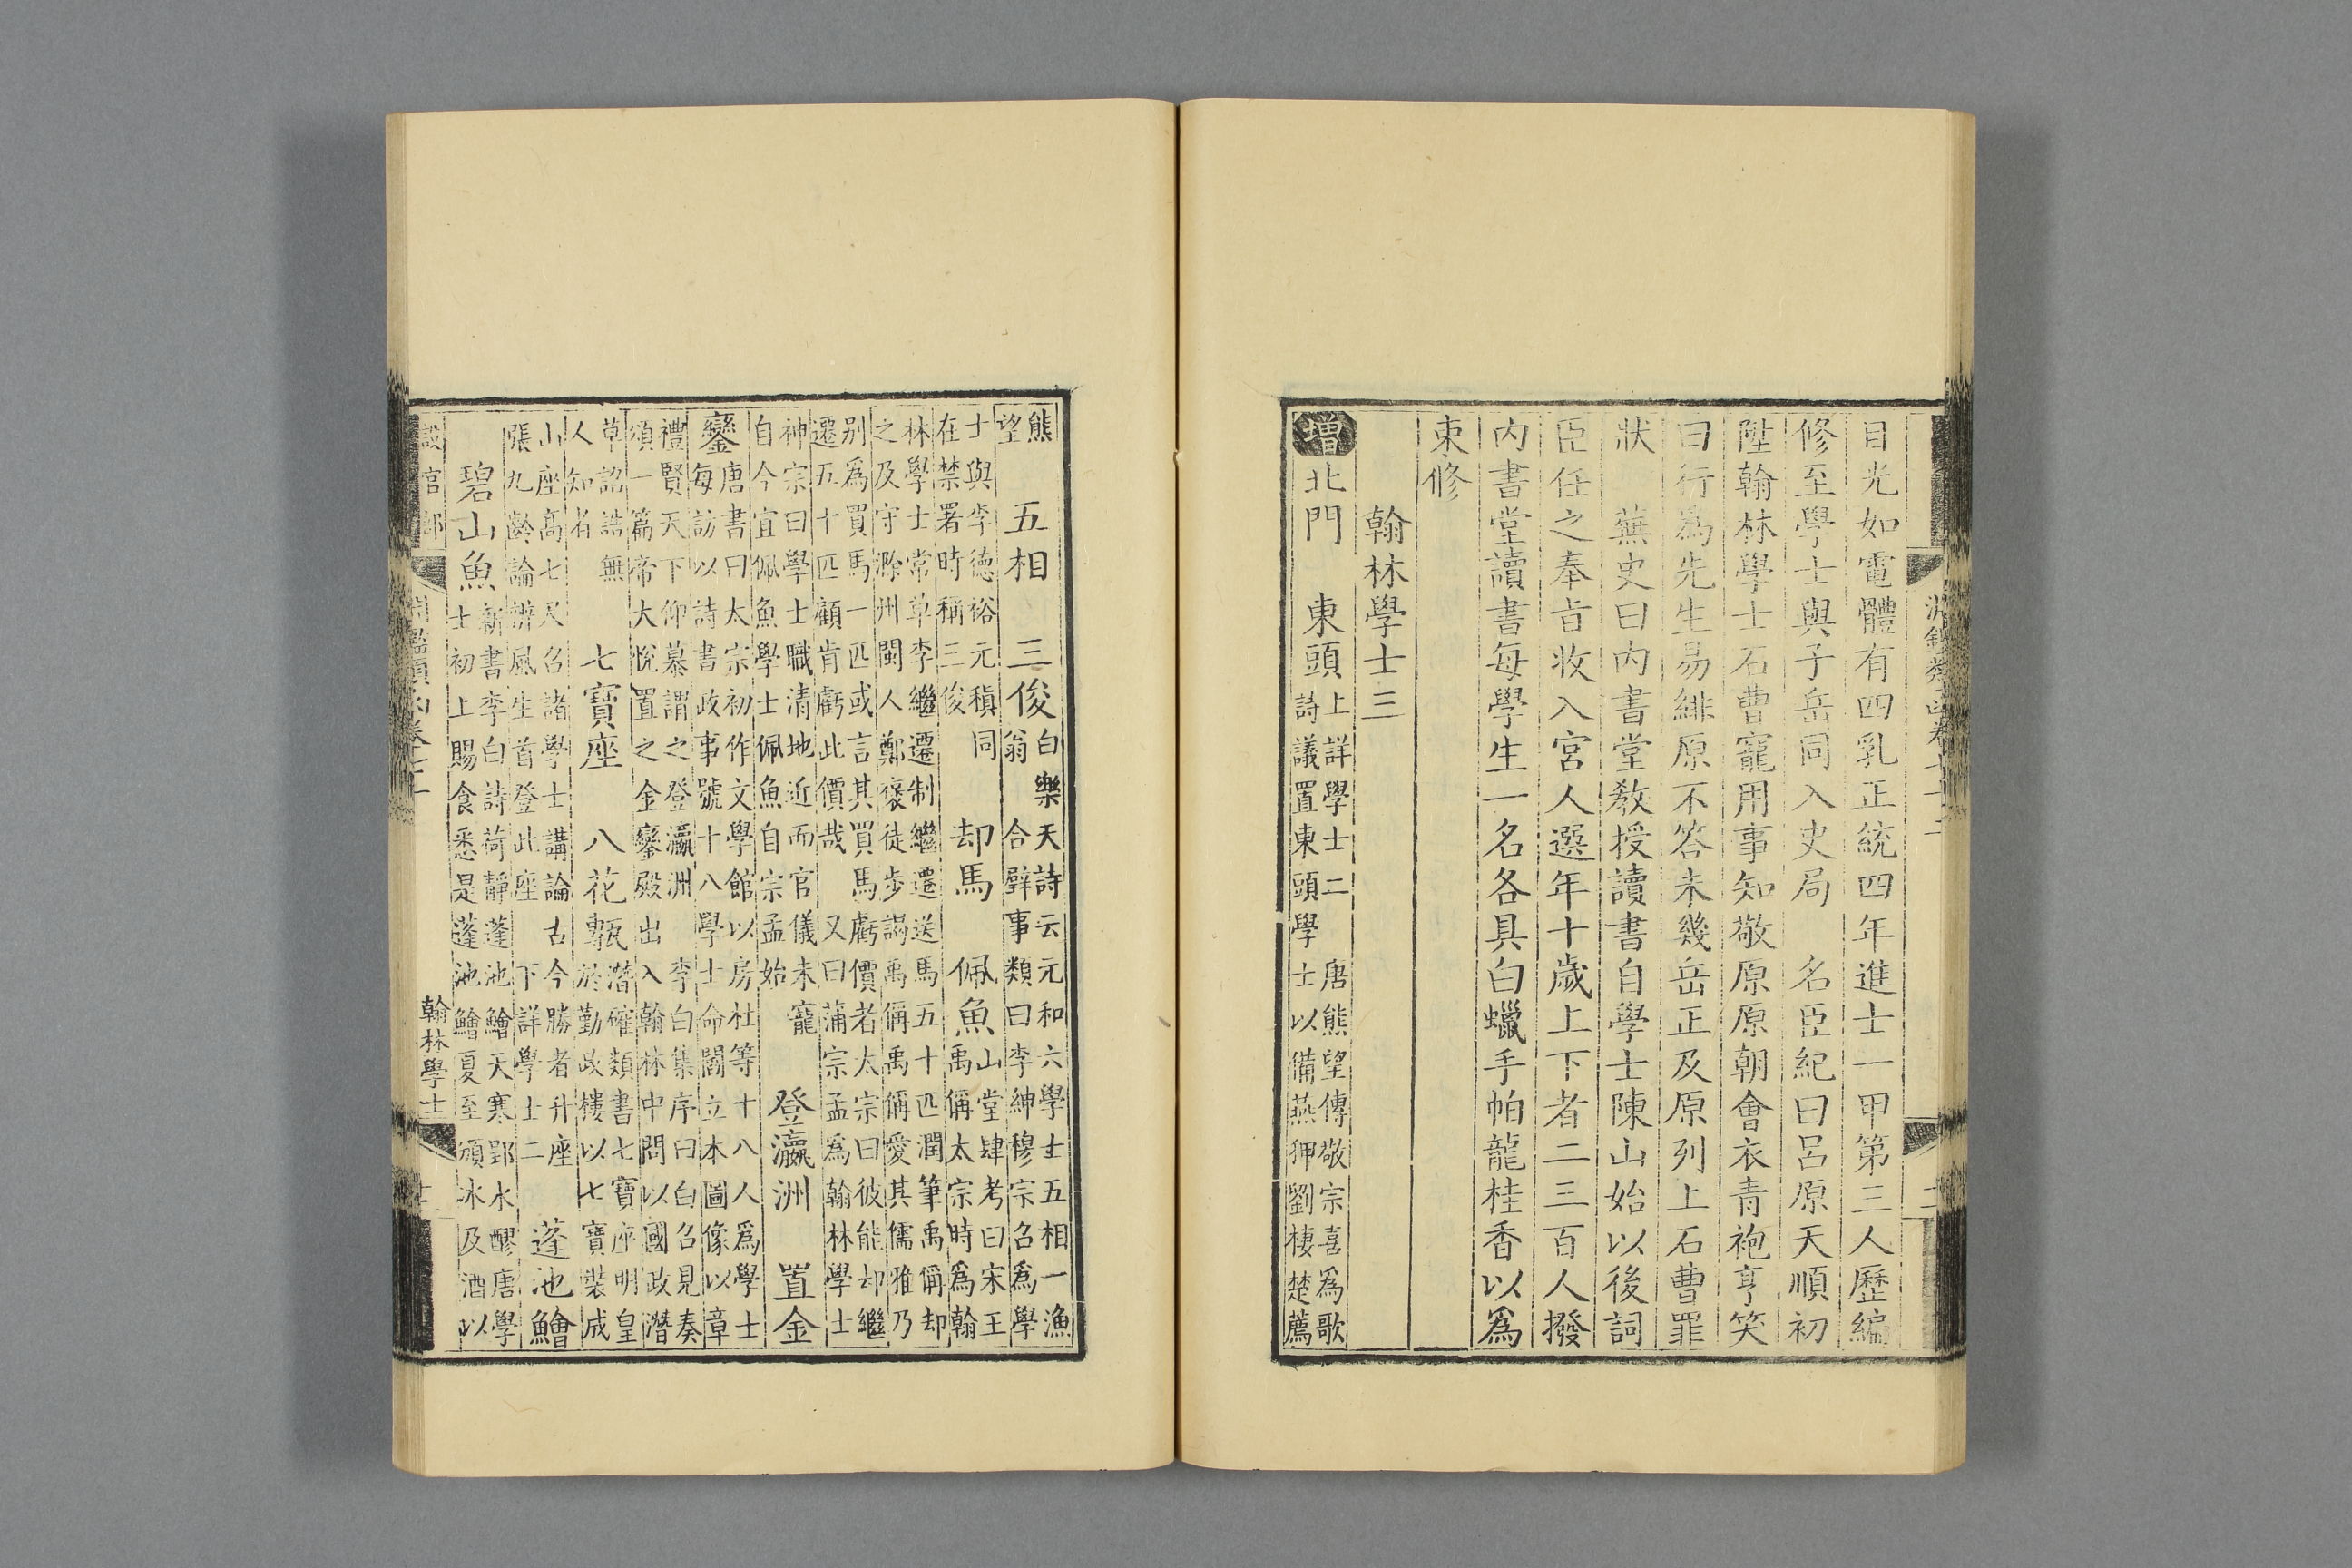 目光如電體有四乳正統四年進士一甲第三人歷編
修至學士與子岳同入史局　名臣紀曰呂原天順初
陞翰林學士石曹寵用事知敬原原朝會衣青袍亨笑
曰行為先生易緋原不答未幾岳正及原列上石曹罪
狀　蕪史曰內書堂教授讀書自學士陳山始以後詞
臣任之奉旨收入宮人選年十歲上下者二三百人撥
內書堂讀書每學生一名各具白蠟手帕龍桂香以爲
束修
翰林學士三
增北門　東頭
上詳學士二　唐熊望傳敬宗喜爲歌
詩議置東頭學士以備燕狎劉棲楚薦
熊
望
五相　三俊
白樂天詩云元和六學士五相一漁
翁　合璧事類曰李紳穆宗召爲學
士與李德裕元稹同
在禁署時稱三俊
却馬　佩魚
山堂肆考曰宋王
禹偁太宗時爲翰
林學士常草李繼遷制繼遷送馬五十匹潤筆禹偁却
之及守滁州閩人鄭褒徒步謁禹偁禹偁愛其儒雅乃
别爲買馬一匹或言其買馬虧價者太宗曰彼能却繼
遷五十匹顧肯虧此價哉　又曰蒲宗孟爲翰林學士
神宗曰學士職清地近而官儀未寵
自今宜佩魚學士佩魚自宗孟始
登瀛洲　置金
鑾
唐書曰太宗初作文學館以房杜等十八人爲學士
每訪以詩書政事號十八學士命閻立本圖像以章
禮賢天下仰慕謂之登瀛洲　李白集序曰白召見奏
頌一篇帝大悅置之金鑾殿出入翰林中問以國政潛
草詔誥無
人知者
七寶座　八花甎
潛確類書七寶座明皇
於勤政樓以七寶裝成
山座高七尺召諸學士講論古今勝者升座
張九齡論辨風生首登此座　下詳學士二
蓬池鱠
碧山魚
新書李白詩荷靜蓬池鱠天寒郢水醪唐學
士初上賜食悉是蓬池鱠夏至頒冰及酒以
設官部
淵鑑類函卷七十二
翰林學士